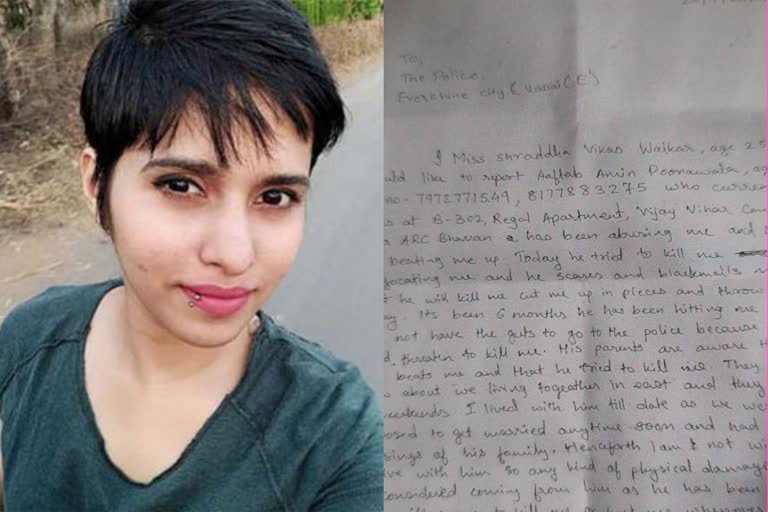 To,
The Police,
Evershine city (Vasai (E)
I Miss Shraddha Vikas Walkar, age 25
uld like to report Aaftab Amin Poonawala, ag
no - 7972771549, 8177883275 who curren
s at B-302, Regal Apartment, Vijay Vihar Com
ARC Bhavan has been abusing me and
beating me up. Today he tried to kill me
focating me and he scares and blackmails m
t he will kill me cut me up in pieces and throw
y. Its been 6 months he has been hitting me
not have the guts to go to the police because
d threaten to kill me. His parents are aware th
beats me and that he tried to kill me. They
about we living together in east and they
weekends I lived with him till date as we wer
osed to get married anytime soon and had
sings of his family, Henceforth I am not wi
ve with him so any kind of physical damage
considered coming from him as he has been